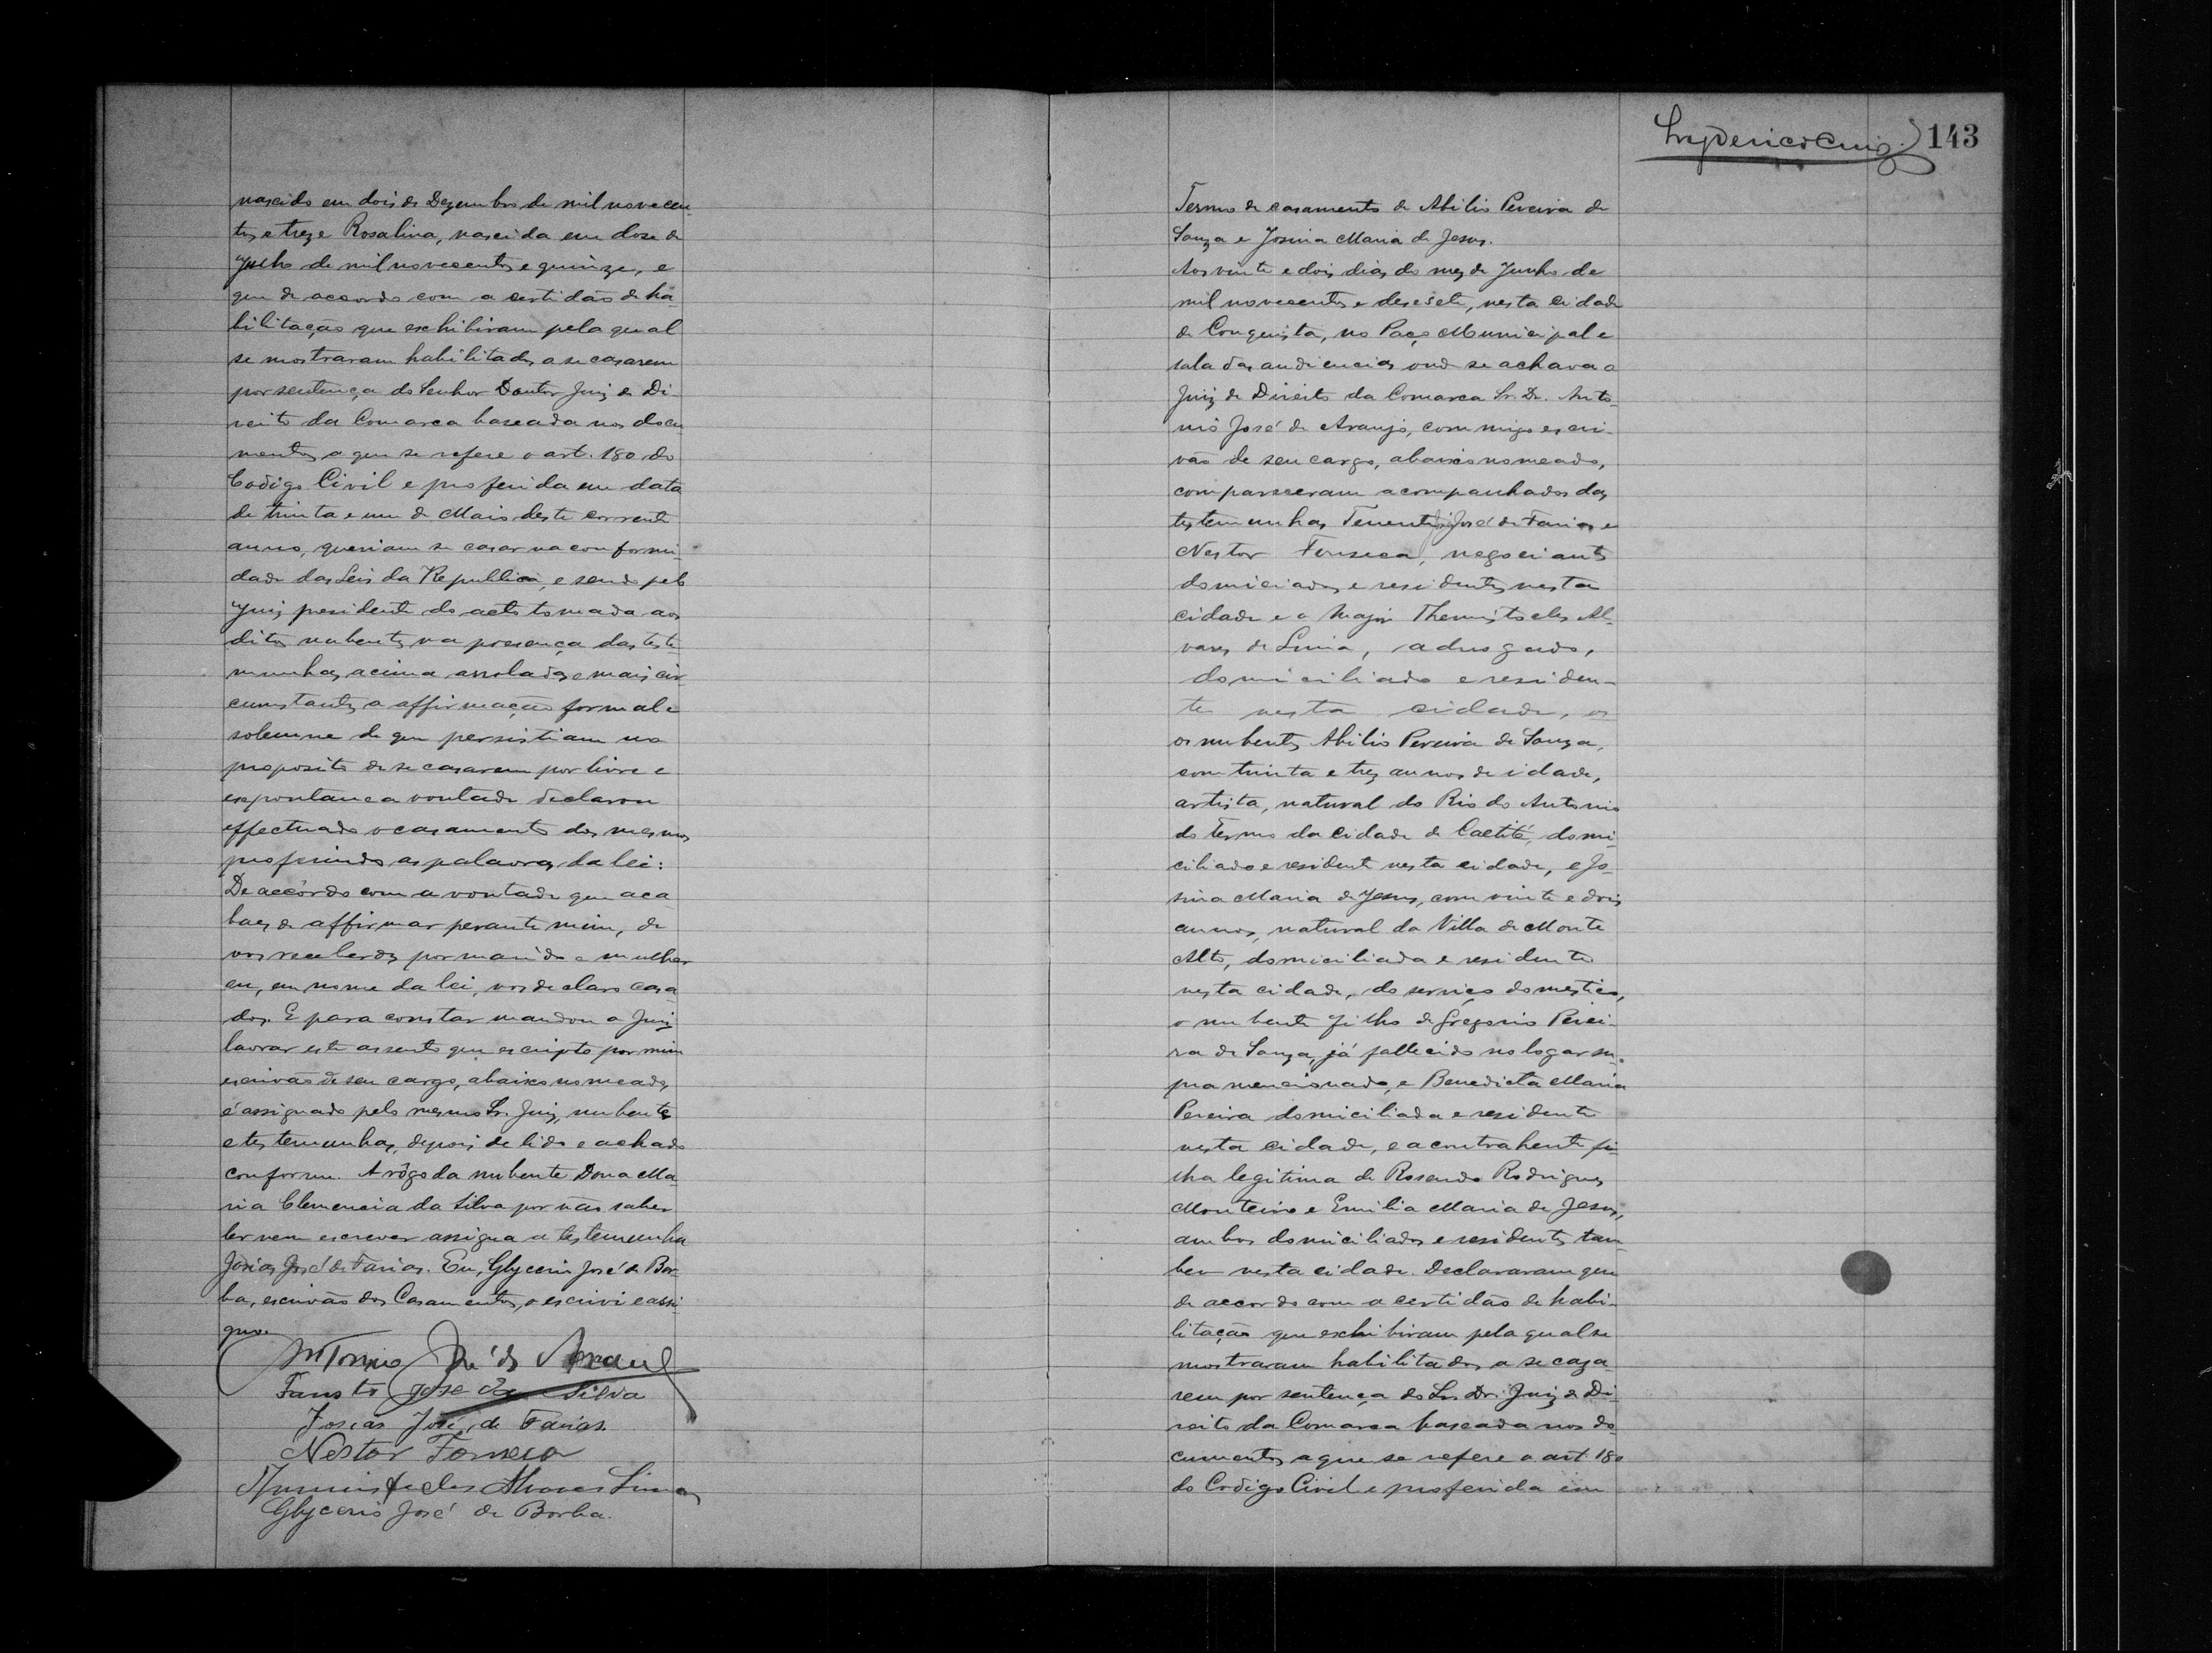 nascido em dois de Dezembro de mil novecen-
tos e treze Rosalina, nascida em dose de
Julho de mil novecentos e quinze, e
que de accordo com a certidão de ha-
bilitação que exhibiram pela qual
se mostraram habilitados a se casarem
por sentença do Senhor Doutor Juiz de Di-
reito da Comarca baseada nos docu-
mentos a que se refere o art. 180 do
Codigo Civil e proferida em data
de trinta e um de Maio deste corrente
anno, queriam se casar na conformi-
dade das Leis da Republica, e sendo pelo
Juiz presidente do acto tomada aos
ditos nubentes na presença das teste-
munhas acima arroladas e mais cir-
cumstantes a affirmação formal e
solemne de que persistiam no
proposito de se casarem por livre e
espontanea vontade declarou
effectuado o casamento dos mesmos
proferindo as palavras da lei:
De accôrdo com a vontade que aca
baes de affirmar perante mim, de
vos receberdes por marido e mulher
eu, em nome da lei, vos declaro casa-
dos. E para constar mandou o Juiz
lavrar este assento que escripto por mim
escrivão de seu cargo, abaixo nomeado,
é assignado pelo mesmo Sr. Juiz, nubentes
e testemunhas, depois de lido e achado
conforme. A rôgo da nubente Dona Ma-
ria Clemencia da Silva por não saber
ler nem escrever assigna a testemunha
Josias José de Farias. Eu, Glycerio José de Bor-
ba, escrivão dos Casamentos, o escrivi e assi-
gno.
Antonio José de Araujo
Fausto José da Silva
Josias José de Farias.
Nestor Fonseca
Themistocles Alvares Lima
Glycerio José de Borba.
143
Termo de casamento de Abilio Pereira de
Souza e Josina Maria de Jesus.
Aos vinte e dois dias do mez de Junho de
mil novecentos e desesete, nesta cidade
de Conquista, no Paço Municipal e
sala das audiencias onde se achava o
Juiz de Direito da Comarca Sr. Dr. Anto-
nio José de Araujo, commigo escri-
vão de seu cargo, abaixo nomeado,
compareceram acompanhados das
testemunhas Tenente José de Farias e
Nestor Fonseca, negociante
domiciados e residentes nesta
cidade e o Major Themistocles Al-
vares de Lima, advogado,
domiciliado e residen-
te nesta cidade, os
os nubentes Abilio Pereira de Souza,
com trinta e tres annos de idade,
artista, natural do Rio do Antonio
do Termo da Cidade de Caetité, domi-
ciliado e residente nesta cidade, e Jo-
sina Maria de Jesus, com vinte e dois
annos, natural da Villa de Monte
Alto, domiciliada e residente
nesta cidade, do serviço domestico,
o nubente filho de Gregorio Perei-
ra de Souza, já fallecido no logar su-
pra mencionado, e Benedicta Maria
Pereira domiciliada e residente
nesta cidade, e a contrahente fi-
lha legitima de Rosendo Rodrigues
Monteiro e Emilia Maria de Jesus,
ambos domiciliados e residentes tam-
bem nesta cidade. Declararam que
de accordo com a certidão de habi-
litação que exhibiram pela qual se
mostraram habilitados a se caza-
rem por sentença do Sr. Dr. Juiz de Di-
reito da Comarca baseada nos do-
cumentos a que se refere o art. 180
do Codigo Civil e proferida em